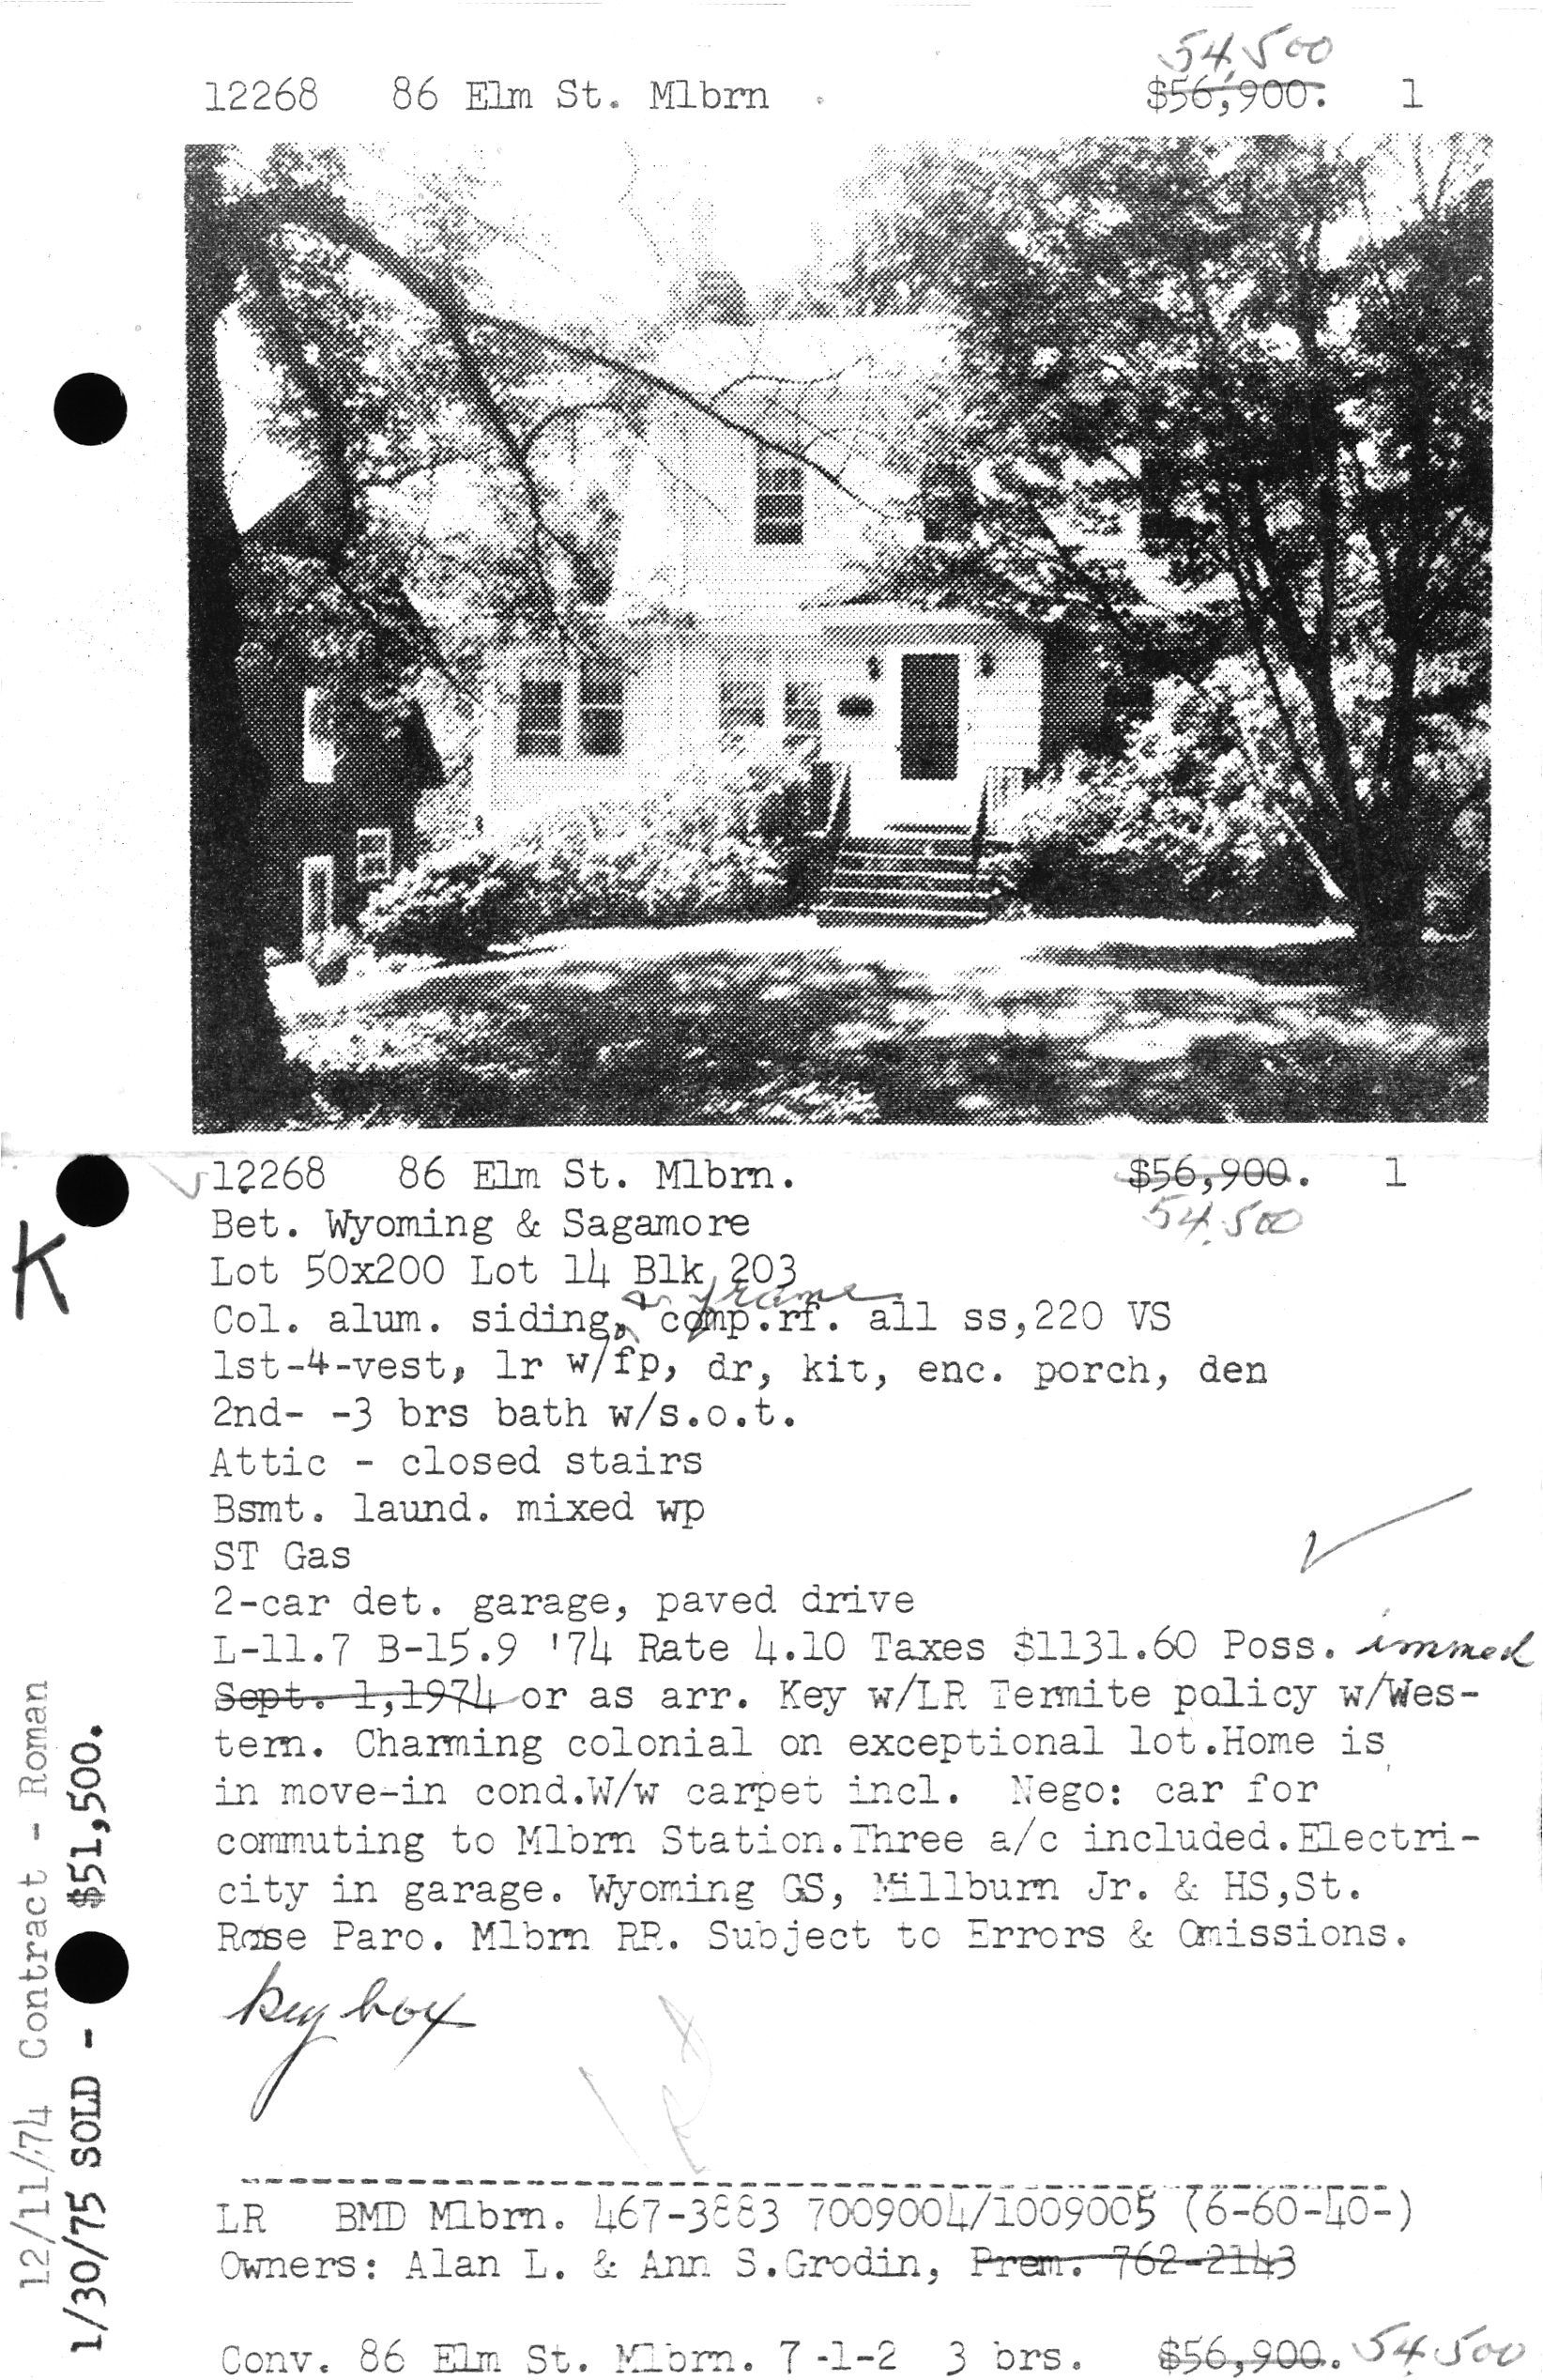 54,500
12268 86 Elm St. Mlbrn . $56,900. 1
12268 86 Elm St. Mlbrn. $56,900. 1
Bet. Wyoming & Sagamore 54,500
Lot 50x200 Lot 14 Blk 203
frame
Col. alum. siding, comp.rf. all ss,220 VS
1st-4-vest, lr w/fp, dr, kit, enc. porch, den
2nd- -3 brs bath w/s.o.t.
Attic - closed stairs
Bsmt. laund. mixed wp
ST Gas
2-car det. garage, paved drive
L-11.7 B-15.9 '74 Rate 4.10 Taxes $1131.60 Poss. immed
Sept. 1,1974 or as arr. Key w/LR Termite policy w/Wes-
tern. Charming colonial on exceptional lot.Home is
in move-in cond.W/w carpet incl. Nego: car for
commuting to Mlbrn Station.Three a/c included.Electri-
city in garage. Wyoming GS, Millburn Jr. & HS,St.
Rose Paro. Mlbrn RR. Subject to Errors & Omissions.
key box
LR BMD Mlbrn. 467-3883 7009004/1009005 (6-60-40-)
Owners: Alan L. & Ann S.Grodin, Prem. 762-2143
Conv. 86 Elm St. Mlbrn. 7-1-2 3 brs. $56,900. 54,500
K
12/11/74 Contract - Roman
1/30/75 SOLD - $51,500.